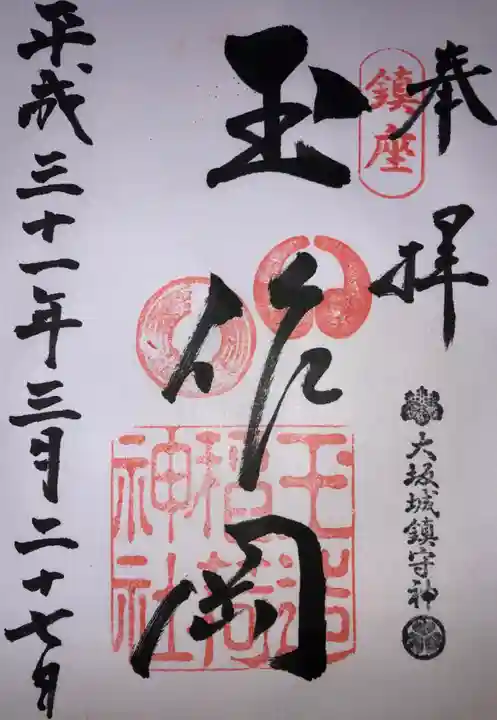 奉拝
鎮座
大坂城鎮守神
玉作岡
玉造稲荷神社
平成三十一年三月二十七日